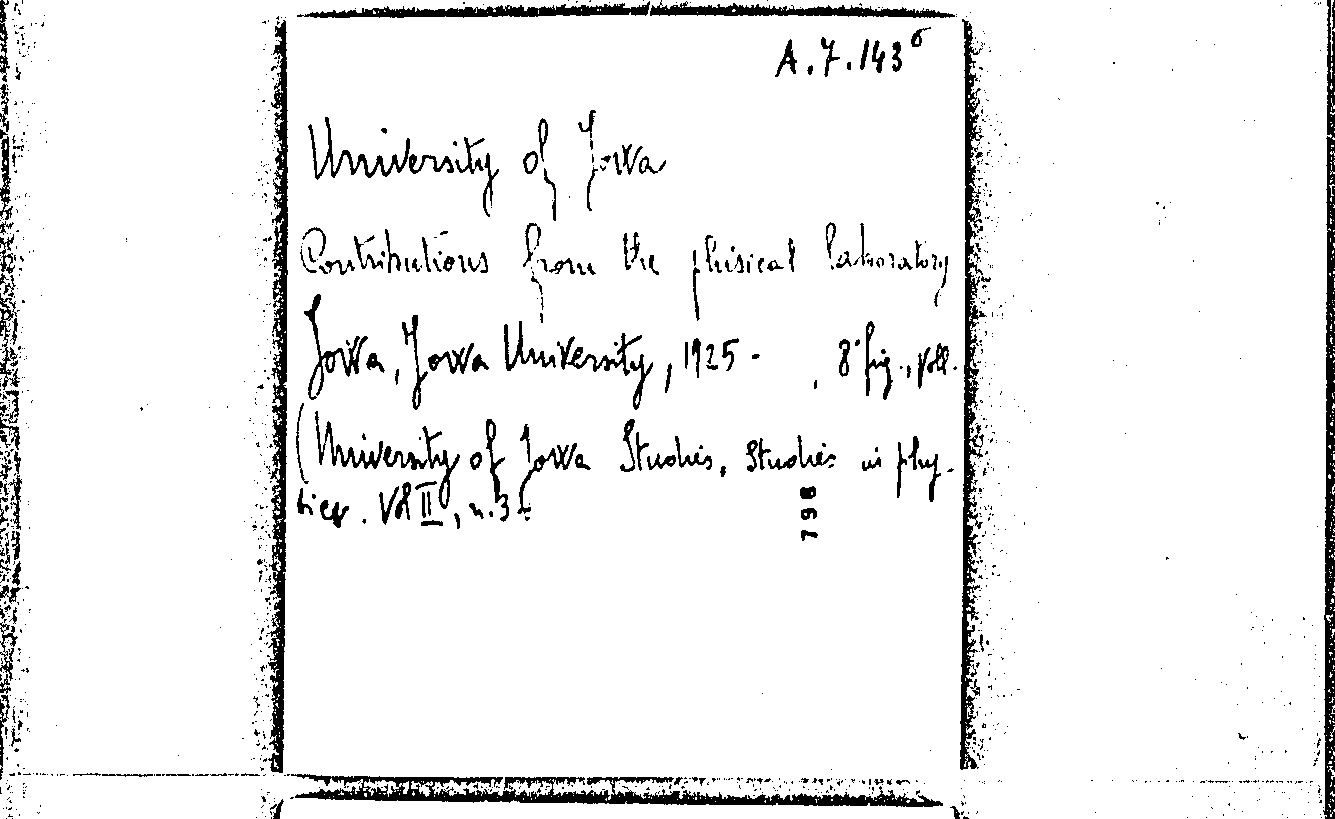 A.7.143⁶
University of Iowa
Contributions from the phisical laboratory
Iowa, Iowa University, 1925- , 8° fig., voll.
(University of Iowa Studies, Studies in phy-
sics. Vol II, n. 3
798